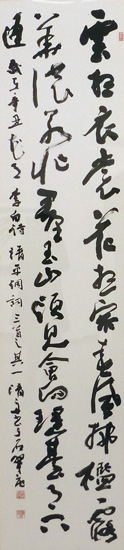 雲想衣裳花想容春風拂檻露
華濃若非羣玉山頭見會向瑤臺月下
逢 辛丑 李白詩 清平調詞三首之其一